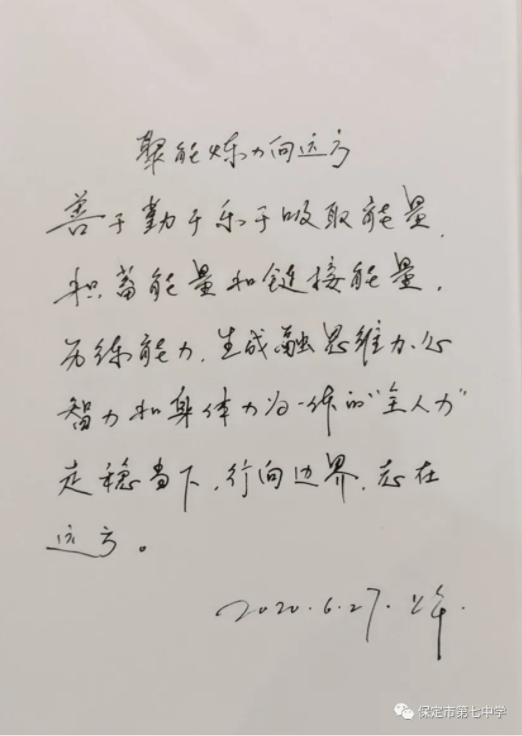 聚能炼力向远方
善于勤于乐于吸取能量,
积蓄能量和链接能量,
历练能力,生成融思维力、心
智力和身体力为一体的“全人力”
走稳当下,行向边界,志在
远方。
2020.6.27.上午.
保定市第七中学